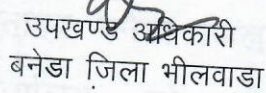 उपखण्ड अधिकारी
बनेडा ज़िला भीलवाडा